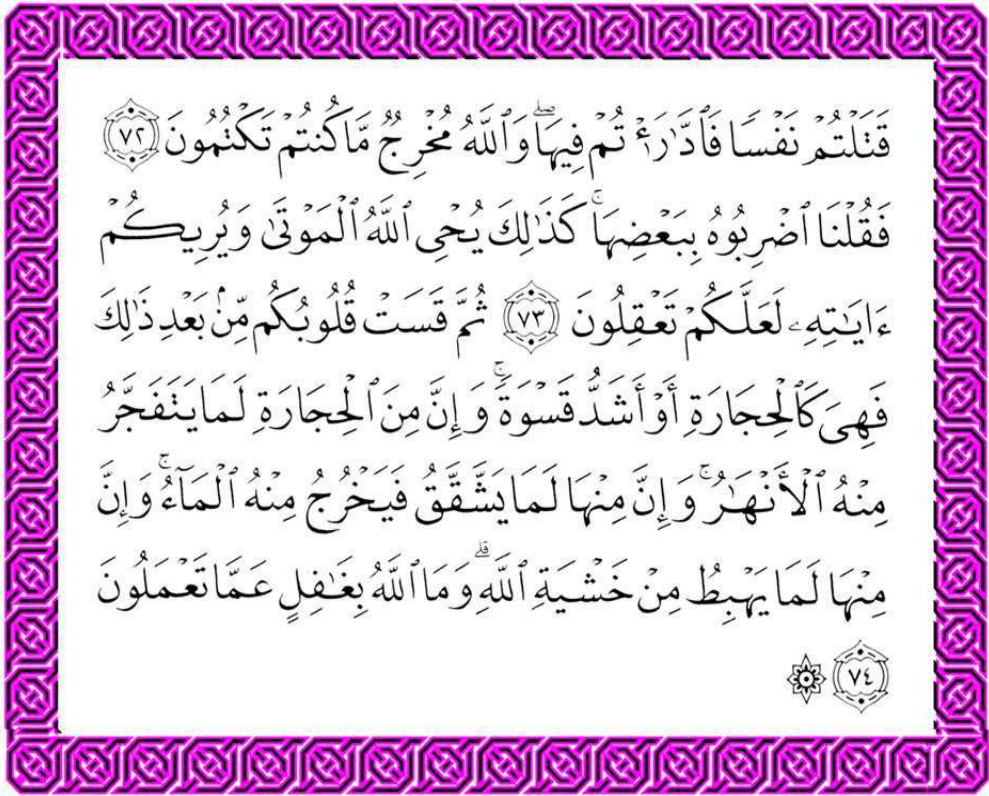 قَتَلْتُمْ نَفْسًا فَٱدَّٰرَْٰٔتُمْ فِيهَا ۖ وَٱللَّهُ مُخْرِجٌ مَّا كُنتُمْ تَكْتُمُونَ ٧٢
فَقُلْنَا ٱضْرِبُوهُ بِبَعْضِهَا ۚ كَذَٰلِكَ يُحْىِ ٱللَّهُ ٱلْمَوْتَىٰ وَيُرِيكُمْ
ءَايَـٰتِهِۦ لَعَلَّكُمْ تَعْقِلُونَ ٧٣ ثُمَّ قَسَتْ قُلُوبُكُم مِّنۢ بَعْدِ ذَٰلِكَ
فَهِىَ كَٱلْحِجَارَةِ أَوْ أَشَدُّ قَسْوَةً ۚ وَإِنَّ مِنَ ٱلْحِجَارَةِ لَمَا يَتَفَجَّرُ
مِنْهُ ٱلْأَنْهَـٰرُ ۚ وَإِنَّ مِنْهَا لَمَا يَشَّقَّقُ فَيَخْرُجُ مِنْهُ ٱلْمَآءُ ۚ وَإِنَّ
مِنْهَا لَمَا يَهْبِطُ مِنْ خَشْيَةِ ٱللَّهِ ۗ وَمَا ٱللَّهُ بِغَـٰفِلٍ عَمَّا تَعْمَلُونَ
٧٤